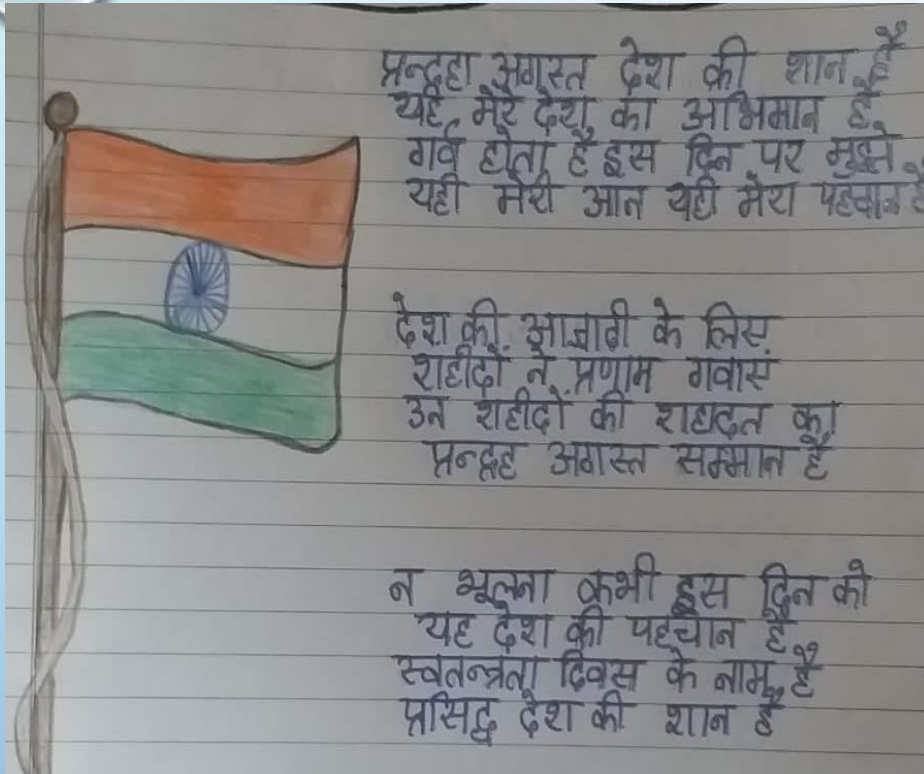 प्रन्द्रहा अगस्त देश की शान है
यह मेरे देश का अभिमान है
गर्व होता है इस दिन पर मुझे
यही मेरी आन यही मेरा पहचान है
देश की आजादी के लिस
शहीदों ने प्रणाम गवासं
उन शहीदों की शहादत का
प्रन्द्रह अगस्त सम्मान है
न भूलना कभी इस दिन को
यह देश की पहचान है
स्वतन्त्रता दिवस के नाम है
प्रसिद्ध देश की शान है